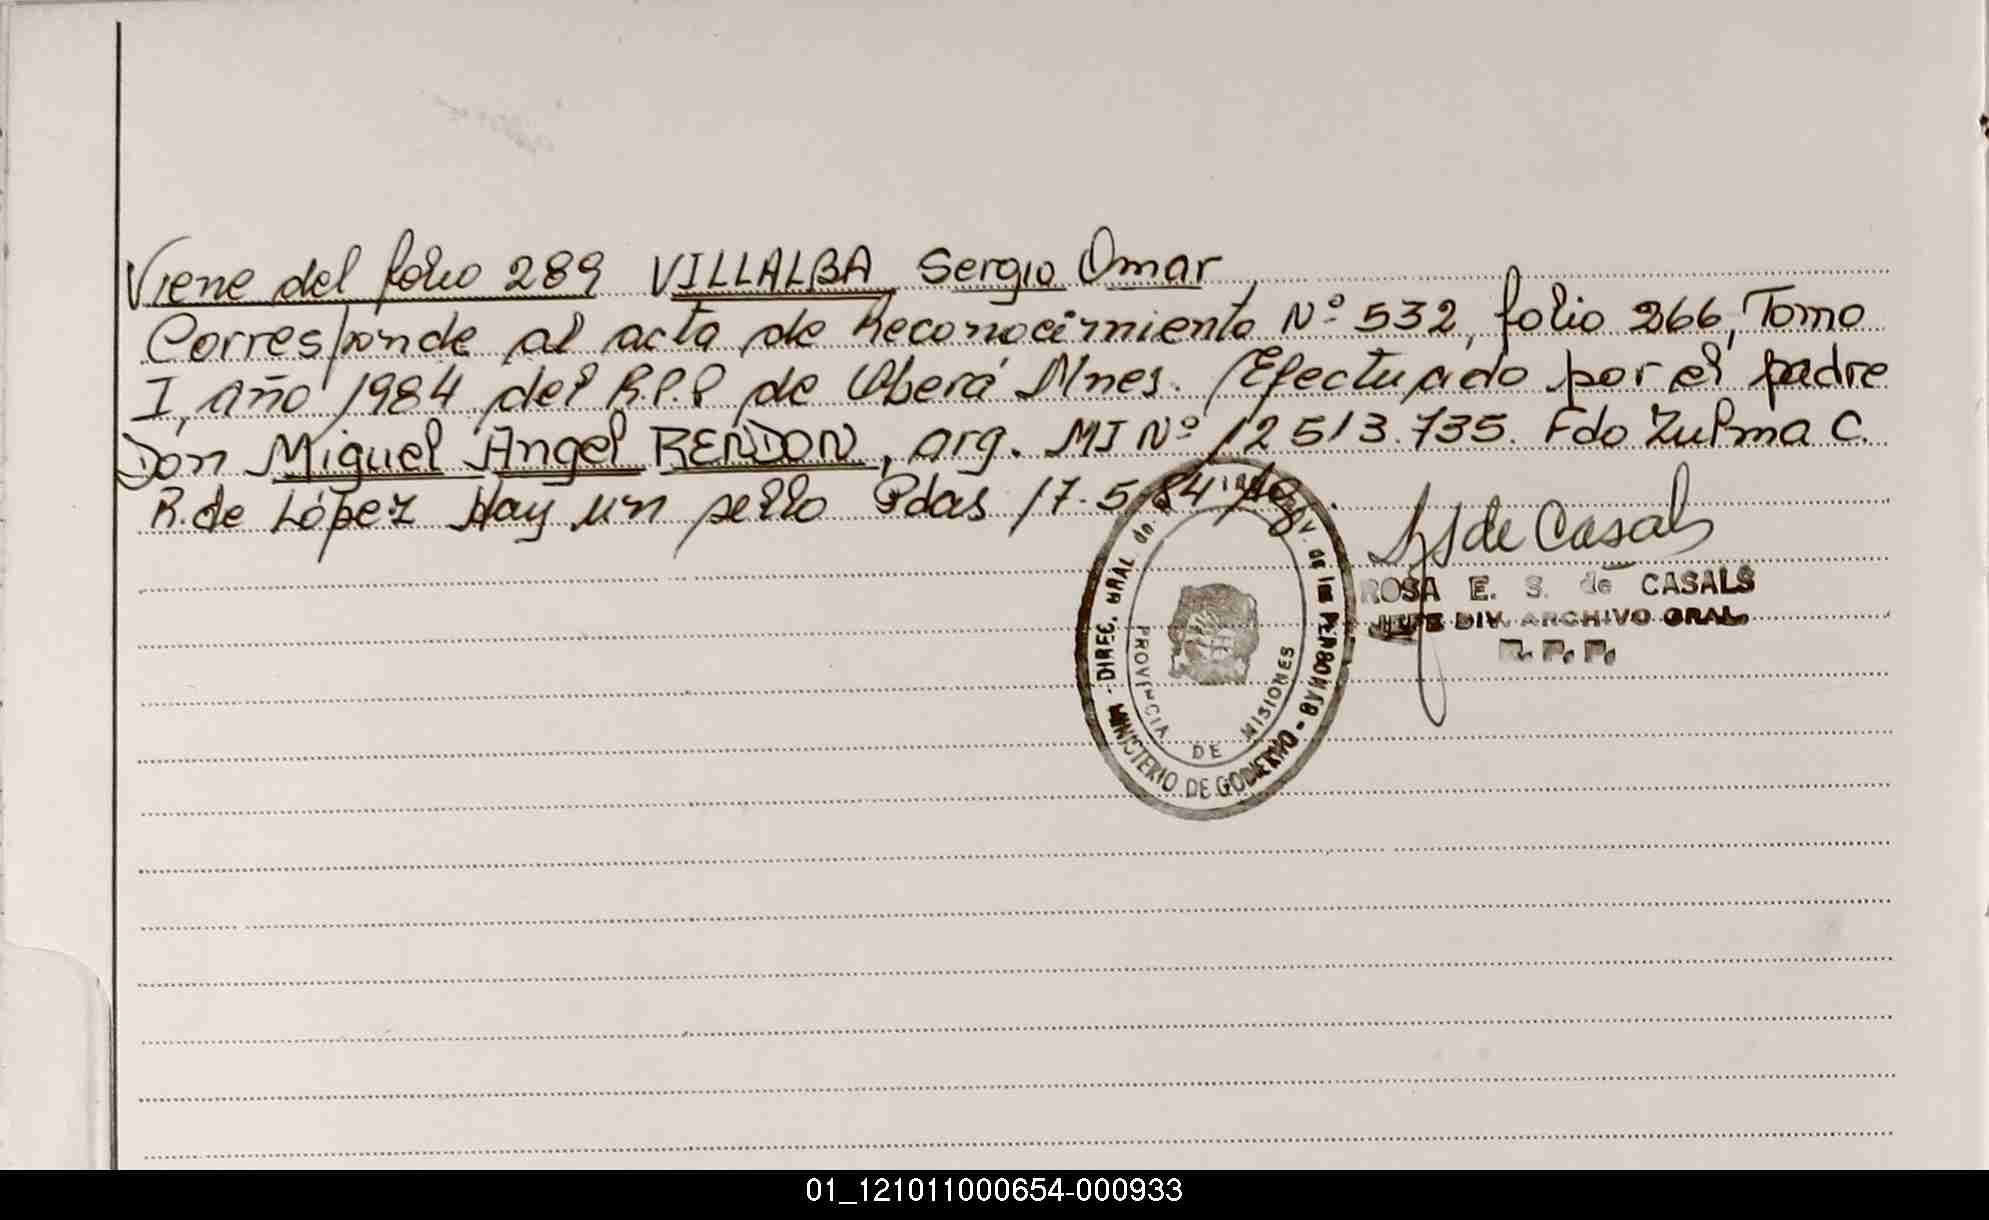 Viene del folio 289 VILLALBA Sergio Omar
Corresponde al acta de Reconocimiento Nº 532, folio 266, Tomo
I, año 1984 del R.P.P de Oberá Mnes. Efectuado por el padre
Don Miguel Angel RENDON, arg. MI Nº 12513.735. Fdo Zulma C.
R. de López Hay un sello Pdas 17.5.84
S de Casals
ROSA E. S. de CASALS
JEFE DIV. ARCHIVO GRAL.
R. P. P.
DIREC. GRAL de de las PERSONAS - MINISTERIO DE GOBIERNO -
PROVINCIA DE MISIONES
01_121011000654-000933